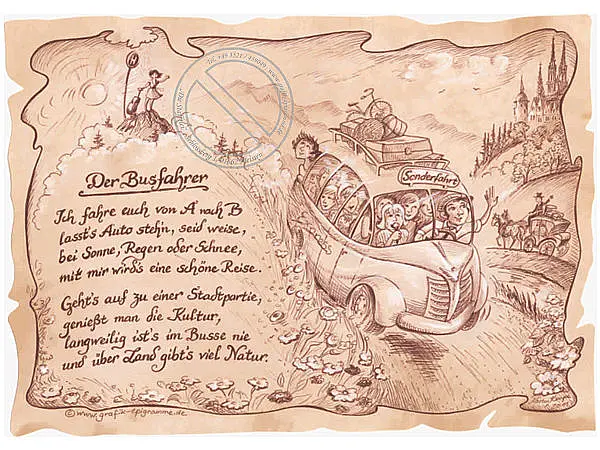 H
Der Busfahrer
Ich fahre euch von A nach B
lasst's Auto stehn, seid weise,
bei Sonne, Regen oder Schnee,
mit mir wird's eine schöne Reise.
Geht's auf zu einer Stadtpartie,
genießt man die Kultur,
langweilig ist's im Busse nie
und über Land gibt's viel Natur.
Sonderfahrt
©www.grafik-epigramme.de